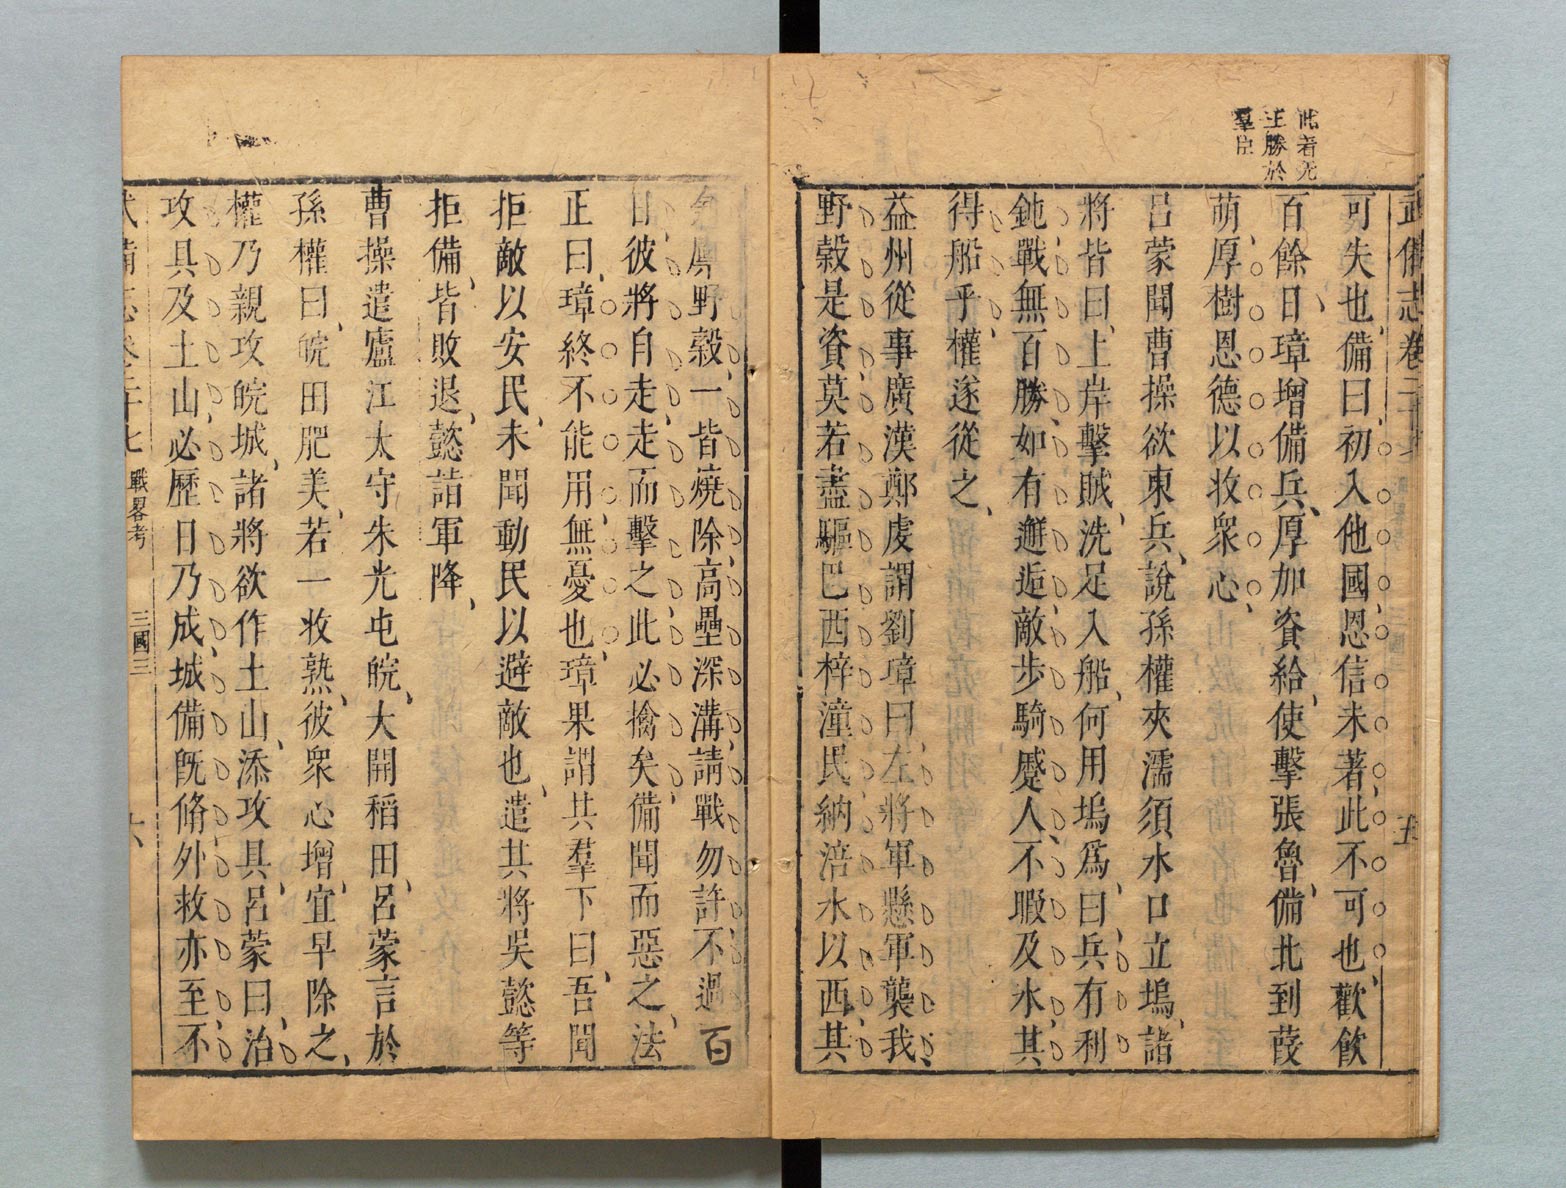 此者先
主勝於
羣臣
武備志卷二十七
五
可失也備曰初入他國恩信未著此不可也歡飲
百餘日璋增備兵厚加資給使擊張魯備北到葭
萌厚樹恩德以收衆心
呂蒙聞曹操欲東兵說孫權夾濡須水口立塢諸
將皆曰上岸擊賊洗足入船何用塢爲曰兵有利
鈍戰無百勝如有邂逅敵步騎蹙人不暇及水其
得船乎權遂從之
益州從事廣漢鄭虔謂劉璋曰左將軍懸軍襲我
野穀是資莫若盡驅巴西梓潼民納涪水以西其
倉廩野穀一皆燒除高壘深溝請戰勿許不過百
日彼將自走走而擊之此必擒矣備聞而惡之法
正曰璋終不能用無憂也璋果謂其羣下曰吾聞
拒敵以安民未聞動民以避敵也遣其將吳懿等
拒備皆敗退懿詣軍降
曹操遣廬江太守朱光屯皖大開稻田呂蒙言於
孫權曰皖田肥美若一收熟彼衆心增宜早除之
權乃親攻皖城諸將欲作土山添攻具呂蒙曰治
攻具及土山必歷日乃成城備既脩外救亦至不
武備志卷二十七 戰畧考 三國三 六